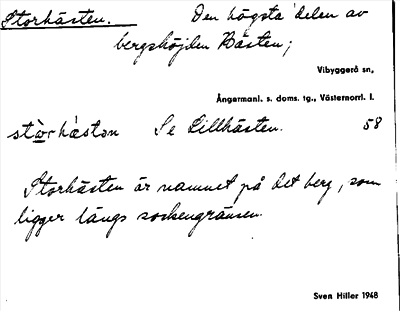 Storhästen. Den högsta delen av
bergshöjden Hästen;
Vibyggerå sn,
Ångermanl. s. doms. tg., Västernorrl. l.
stòrhàstən Se Lillhästen. 58
Storhästen är namnet på det berg, som
ligger längs sockengränsen.
Sven Hiller 1948